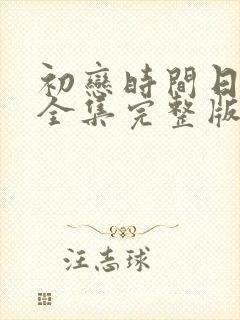 初戀時間日
全集完整版
汪志球